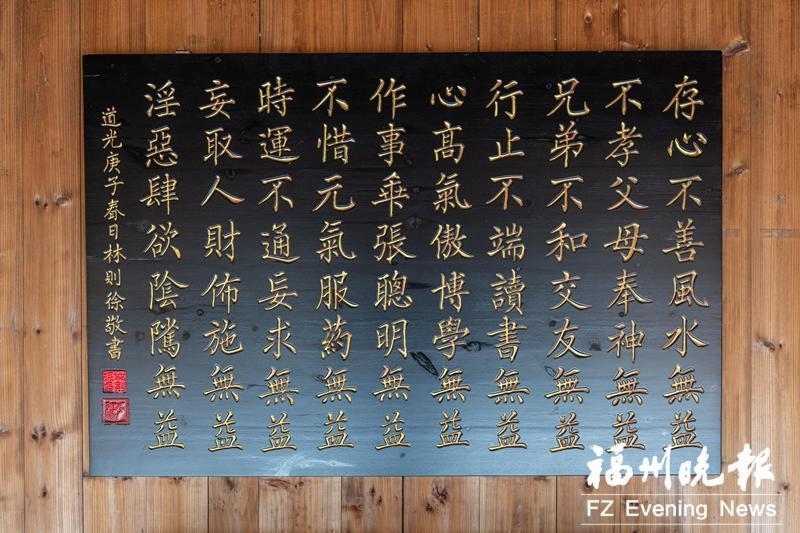 存心不善風水無益
不孝父母奉神無益
兄弟不和交友無益
行止不端讀書無益
心高氣傲博學無益
作事乖張聰明無益
不惜元氣服葯無益
時運不通妄求無益
妄取人財佈施無益
淫惡肆欲陰隲無益
道光庚子春日林則徐敬書
福州晚報
FZ Evening News